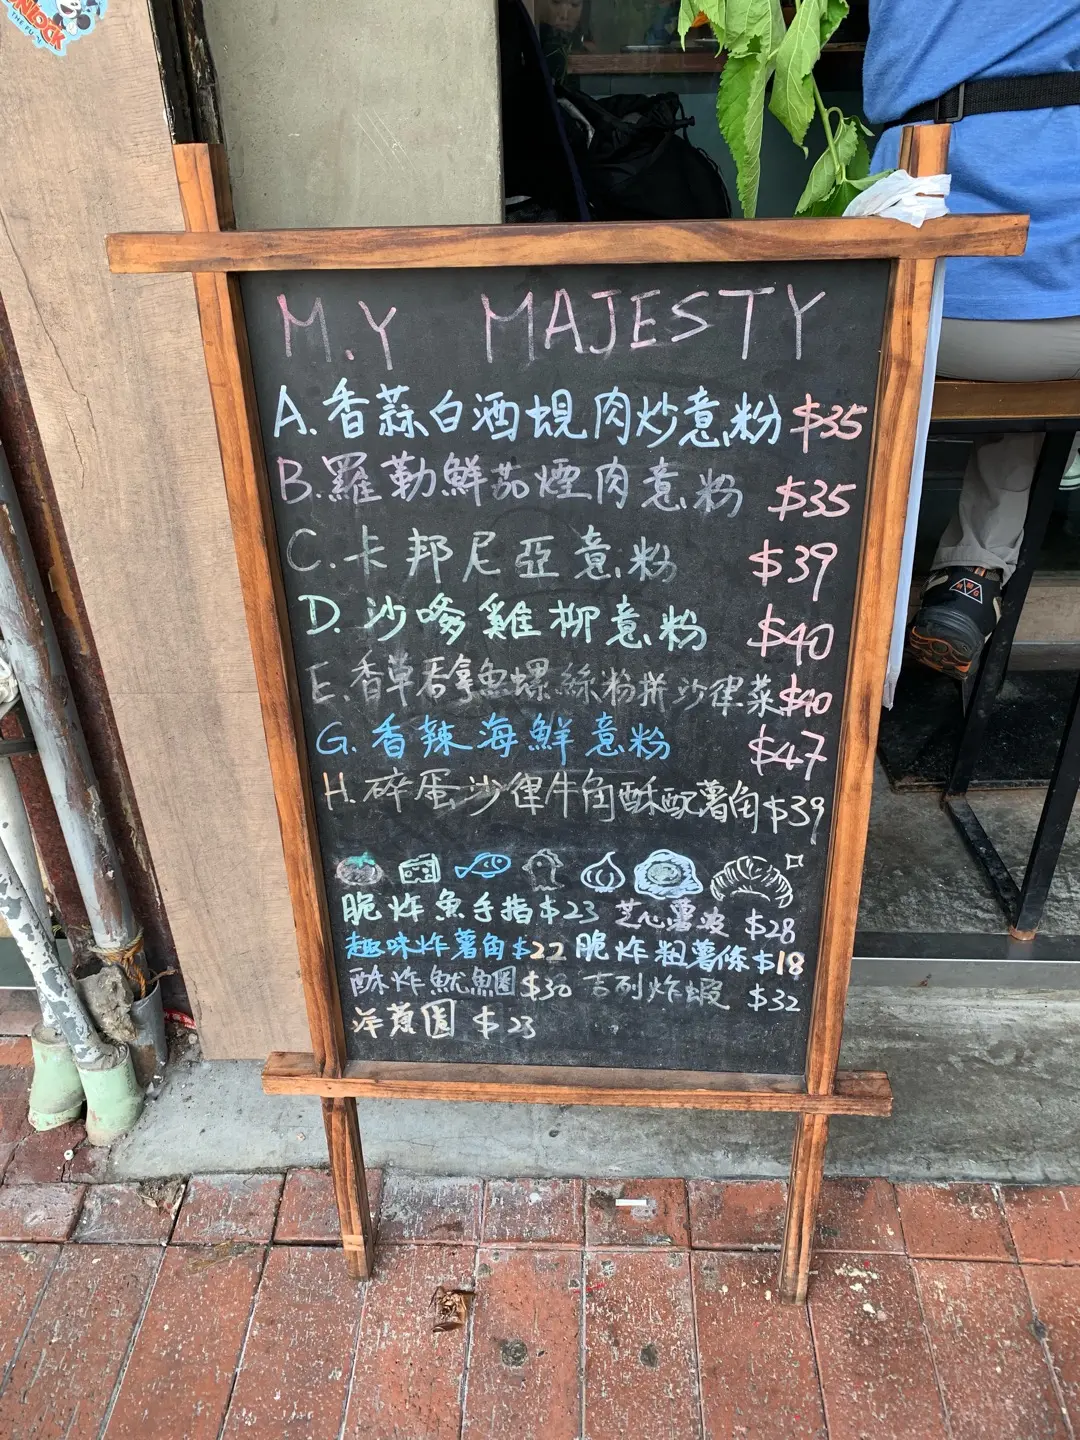 UNLOCK
THE FUN
M.Y MAJESTY
A.香蒜白酒蜆肉炒意粉 $35
B.羅勒鮮茄煙肉意粉 $35
C.卡邦尼亞意粉 $39
D.沙嗲雞柳意粉 $40
E.香草吞拿魚螺絲粉拼沙律菜 $40
G.香辣海鮮意粉 $47
H.碎蛋沙律牛角酥配薯角 $39
脆炸魚手指 $23 芝心薯波 $28
趣味炸薯角 $22 脆炸粗薯條 $18
酥炸魷魚圈 $30 吉列炸蝦 $32
洋蔥圈 $23